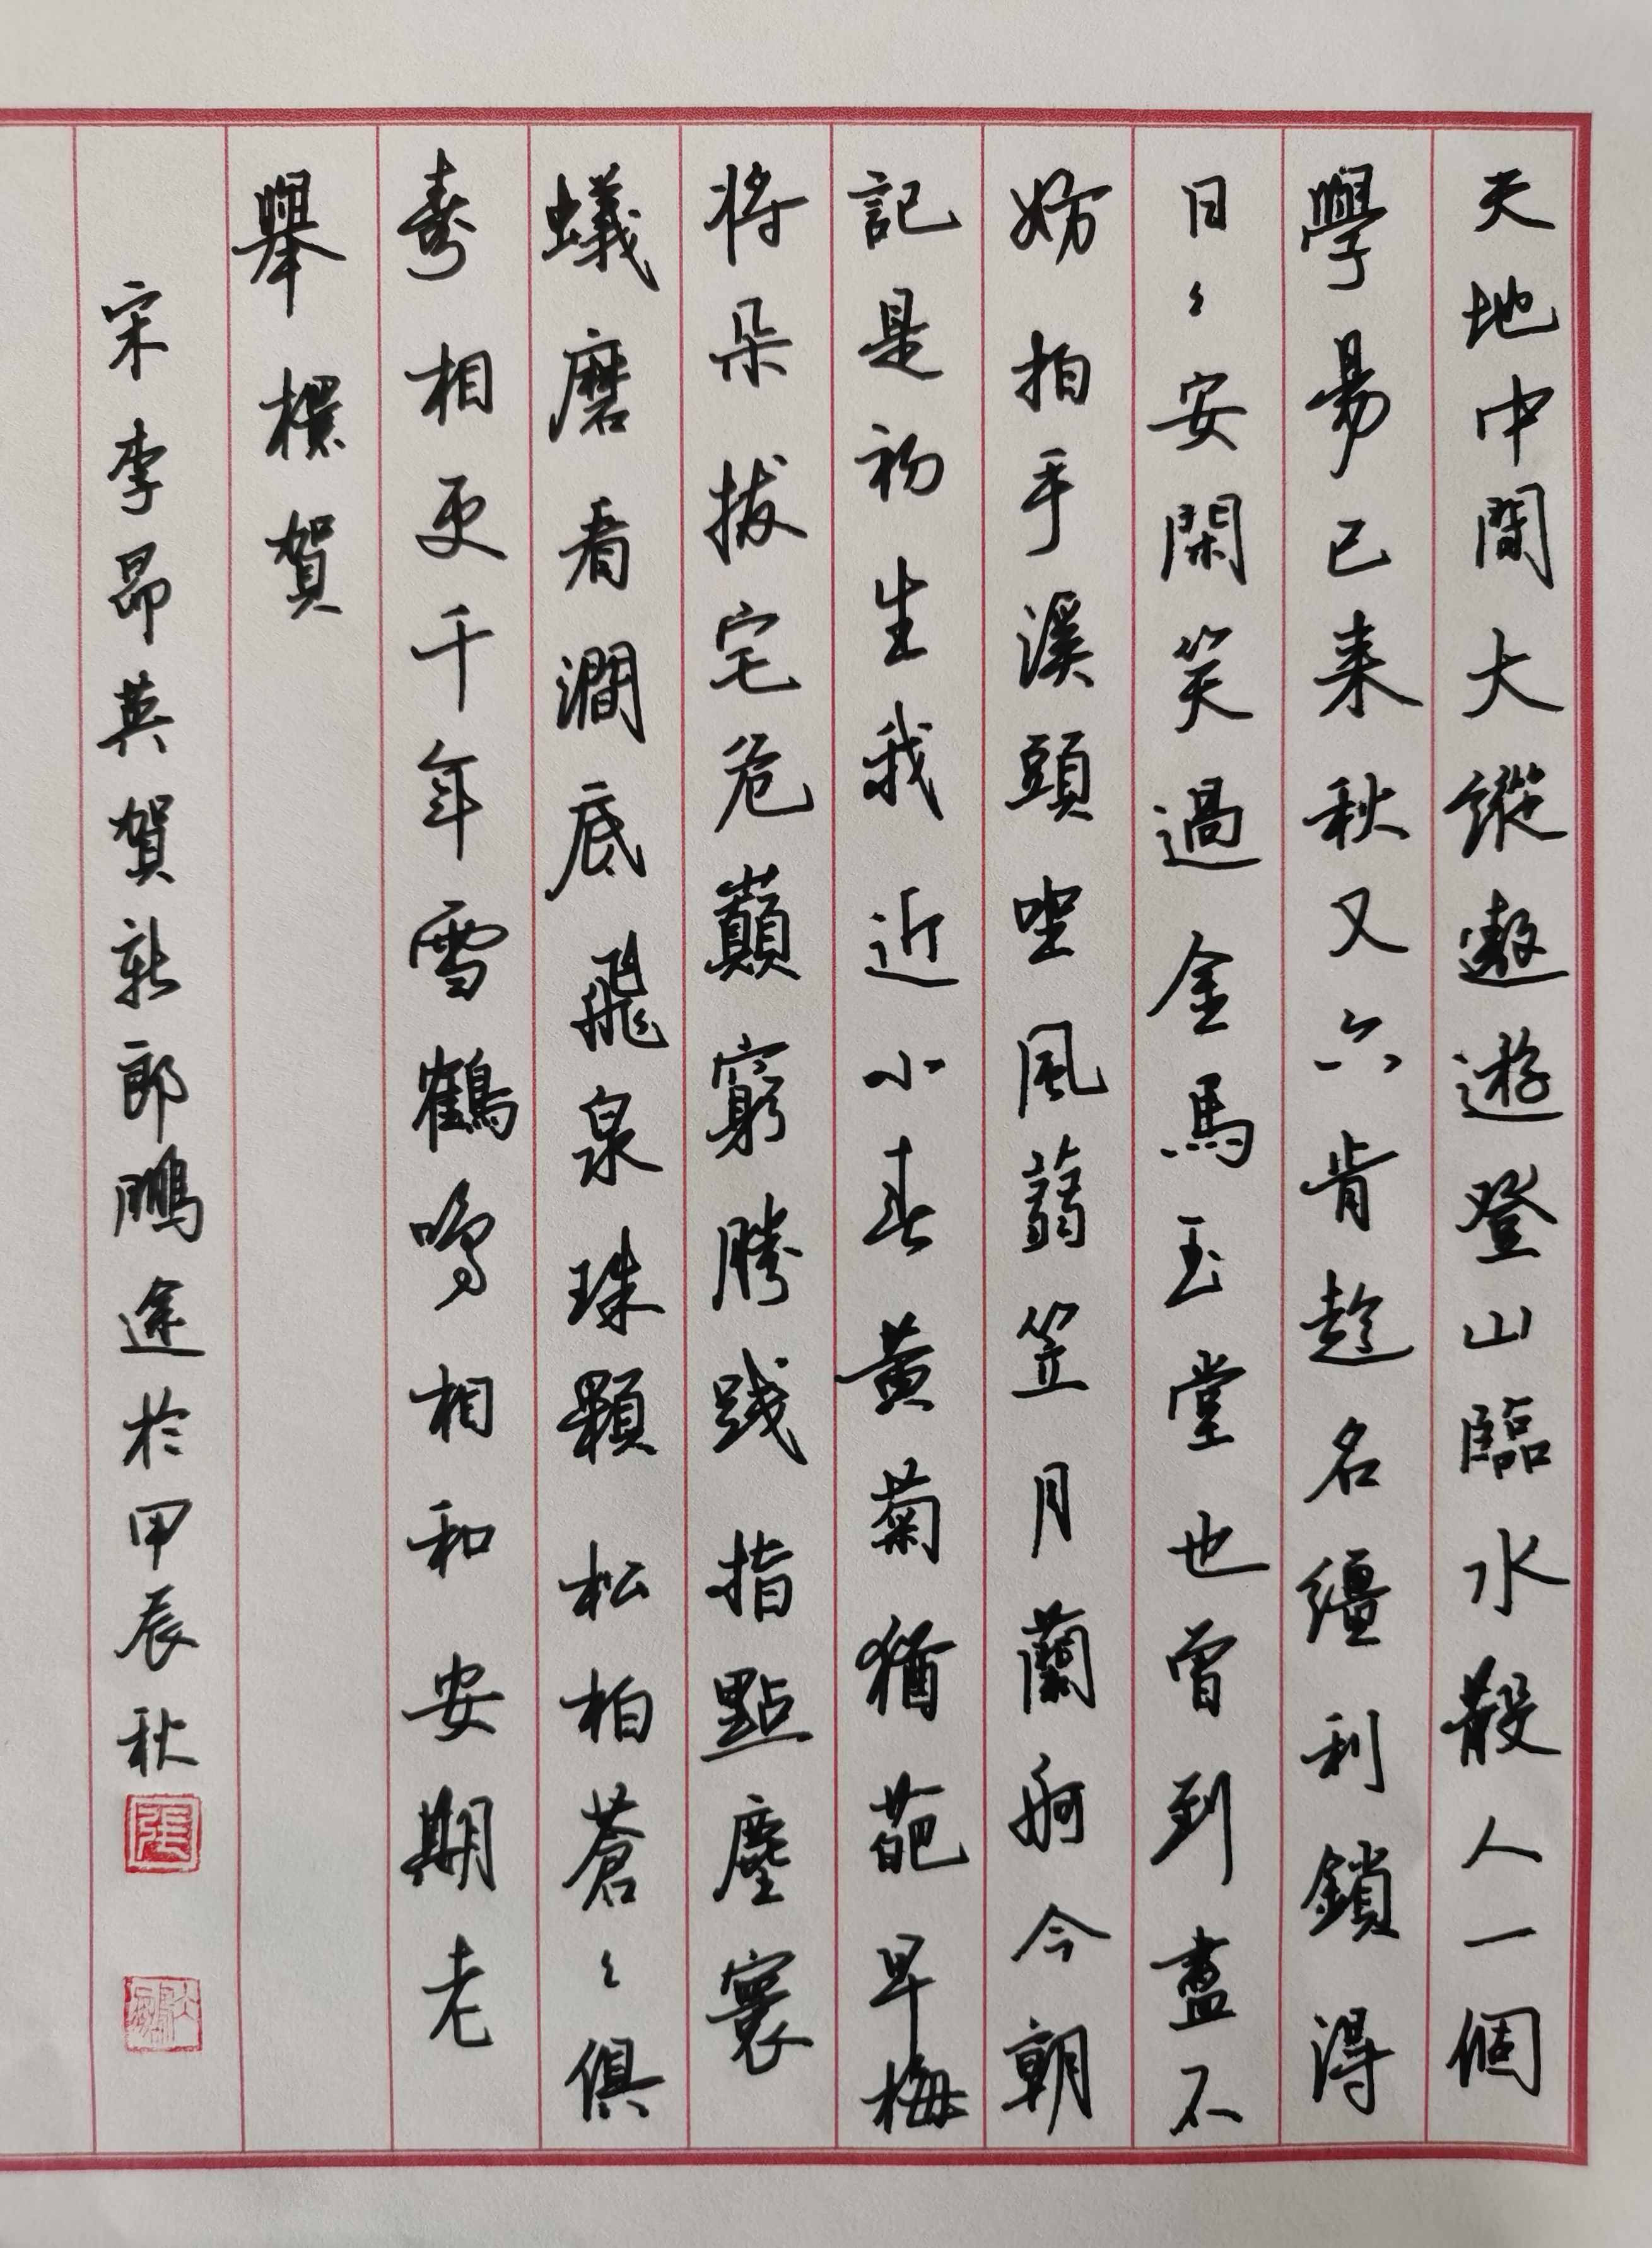 天地中間大縱遨遊登山臨水散人一個
學易已来秋又六肯趁名繮利鎖得
日々安閑笑過金馬玉堂也曾到盡不
妨拍手溪頭坐風蒻笠月蘭舸今朝
記是初生我近小春黄菊猶葩早梅
将朵拔宅危巔窮勝踐指點塵寰
蟻磨看澗底飛泉珠顆松柏蒼々俱
壽相更千年雪鶴鳴相和安期老
舉櫻賀
宋李昴英賀新郎鵬途於甲辰秋
張